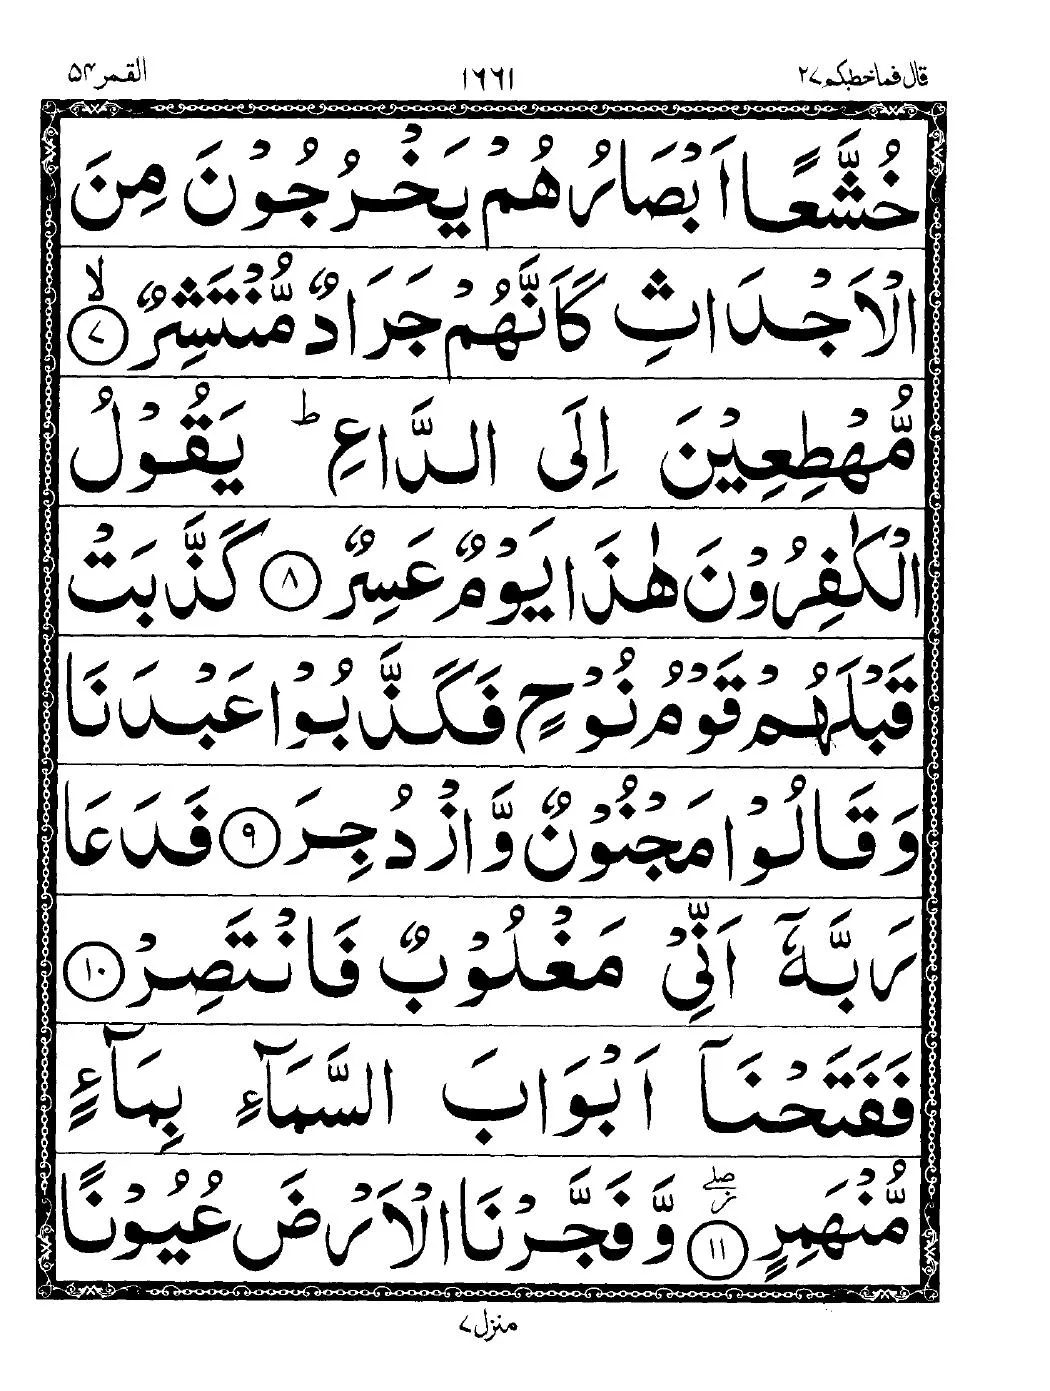 قال فما خطبكم ٢٧ ١٦٦١ القمر ٥٤
خُشَّعًا اَبْصَارُهُمْ يَخْرُجُوْنَ مِنَ
الْاَجْدَاثِ كَاَنَّهُمْ جَرَادٌ مُّنْتَشِرٌ ۙ ٧
مُّهْطِعِيْنَ اِلَى الدَّاعِ ؕ يَقُوْلُ
الْكٰفِرُوْنَ هٰذَا يَوْمٌ عَسِرٌ ٨ كَذَّبَتْ
قَبْلَهُمْ قَوْمُ نُوْحٍ فَكَذَّبُوْا عَبْدَنَا
وَقَالُوْا مَجْنُوْنٌ وَّازْدُجِرَ ٩ فَدَعَا
رَبَّهٗۤ اَنِّىْ مَغْلُوْبٌ فَانْتَصِرْ ١٠
فَفَتَحْنَاۤ اَبْوَابَ السَّمَآءِ بِمَآءٍ
مُّنْهَمِرٍ ۖ ز ١١ وَّفَجَّرْنَا الْاَرْضَ عُيُوْنًا
منزل ٧